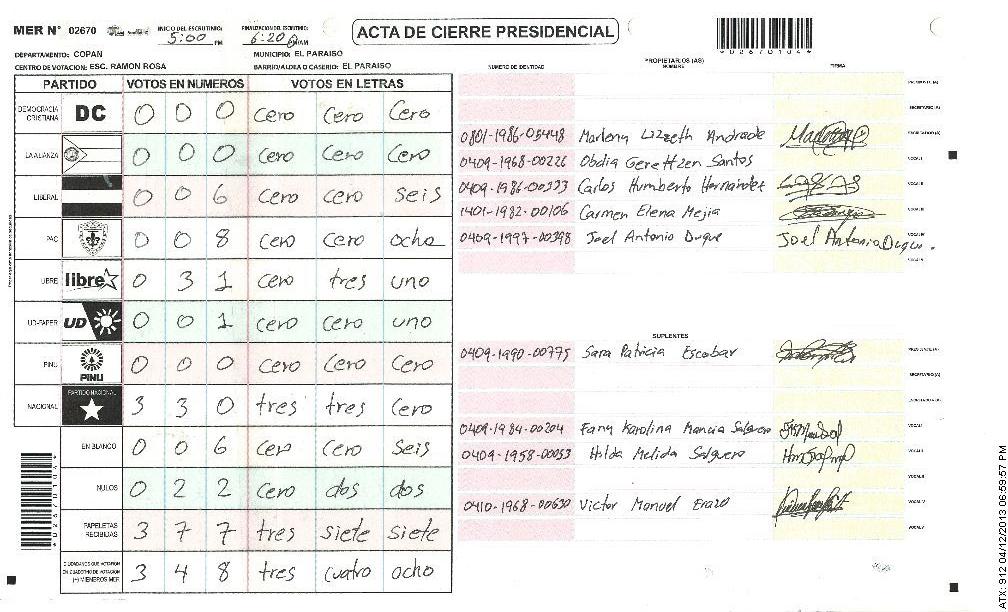 MER N° 02670
INICIO DEL ESCRUTINIO: 5:00 PM
FINALIZACION DEL ESCRUTINIO: 6:20
ACTA DE CIERRE PRESIDENCIAL
DEPARTAMENTO: COPAN
MUNICIPIO: EL PARAISO
CENTRO DE VOTACION: ESC. RAMON ROSA
BARRIO/ALDEA O CASERIO: EL PARAISO
PARTIDO VOTOS EN NUMEROS VOTOS EN LETRAS
DEMOCRACIA CRISTIANA DC 0 0 0 cero cero cero
LA ALIANZA 0 0 0 cero cero cero
LIBERAL 0 0 6 cero cero seis
PAC 0 0 8 cero cero ocho
LIBRE libre 0 3 1 cero tres uno
UD-FAPER UD 0 0 1 cero cero uno
PINU PINU 0 0 0 cero cero cero
NACIONAL PARTIDO NACIONAL 3 3 0 tres tres cero
EN BLANCO 0 0 6 cero cero seis
NULOS 0 2 2 cero dos dos
PAPELETAS RECIBIDAS 3 7 7 tres siete siete
CIUDADANOS QUE VOTARON EN CUADERNO DE VOTACION (+) MIEMBROS MER 3 4 8 tres cuatro ocho
NUMERO DE IDENTIDAD PROPIETARIOS (AS) NOMBRE FIRMA
0801-1986-05448 Marlena Lizzeth Andrade
0409-1968-00226 Obdia Santos
0409-1986-00393 Carlos Humberto Hernandez
1401-1982-00106 Carmen Elena Mejia
0409-1997-00398 Joel Antonio Duque Joel Antonio Duque
SUPLENTES
0409-1990-00775 Sara Patricia Escobar
0409-1984-00204 Fany Karolina Mancia Salguero
0409-1958-00053 Hilda Melida Salguero
0410-1968-00630 Victor Manuel Erazo
ATX: 912 04/12/2013 06:59:57 PM